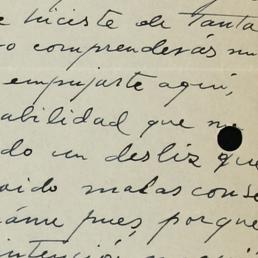 e hiciste de tanta
o comprenderás mu
empujarte aquí,
abilidad que me
do un desliz que
aido malas conse
áme pues, porque
intención